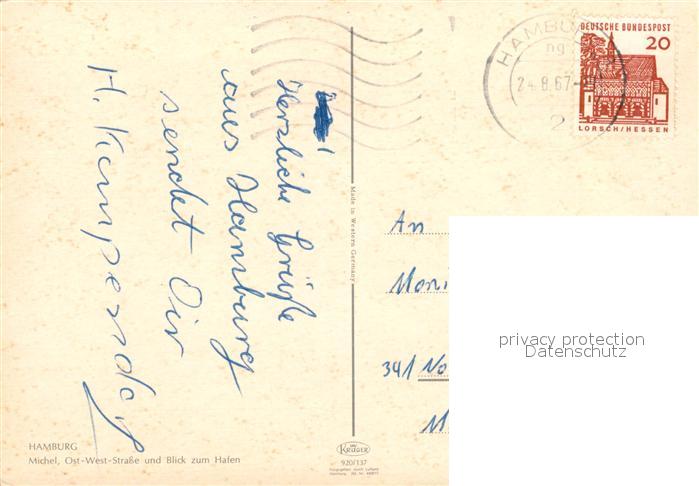 Herzliche Grüße
aus Hamburg
sendet Dir
H. Kampendorf
An
Moni
341 No
M
HAMBURG
24.8.67
2
DEUTSCHE BUNDESPOST
20
LORSCH/HESSEN
Made in Western Germany
privacy protection
Datenschutz
HAMBURG
Michel, Ost-West-Straße und Blick zum Hafen
KRÜGER
920/137